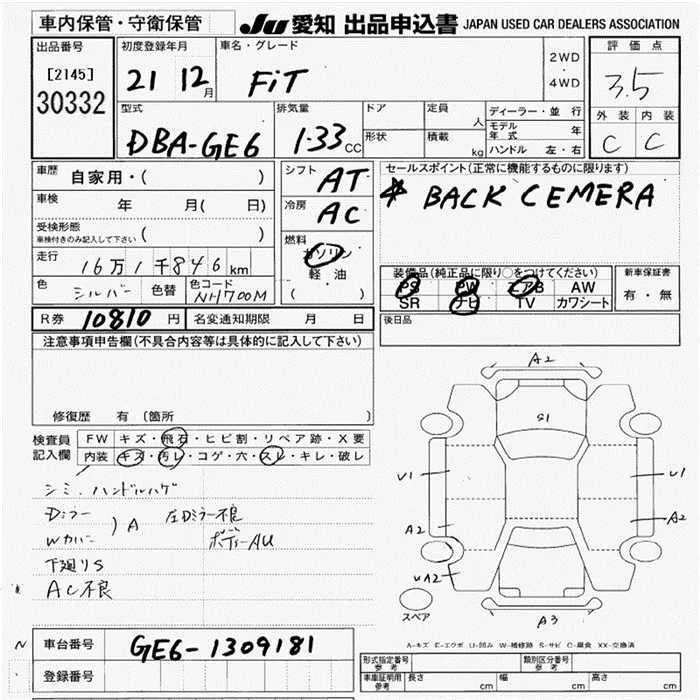 車内保管・守衛保管
JU 愛知 出品申込書 JAPAN USED CAR DEALERS ASSOCIATION
出品番号
[2145]
30332
初度登録年月
21 12月
車名・グレード
FiT
2WD
・
4WD
評価点
3.5
外装 内装
C C
型式
DBA-GE6
排気量
1.33 CC
ドア
形状
定員
人
積載
kg
ディーラー・並行
モデル年式 年
ハンドル 左・右
車歴 自家用・( )
車検 年 月( 日)
受検形態
車検付きのみ記入して下さい ( )
走行
16万1千846km
色 シルバー 色替 色コード NH700M
シフト AT
冷房 AC
燃料
ガソリン
軽油
( )
セールスポイント(正常に機能するものに限ります)
* BACK CEMERA
装備品(純正品に限り○をつけてください)
PS PW エアB AW
SR ナビ TV カワシート
新車保証書
有・無
後日品
R券 10810円 名変通知期限 月 日
注意事項申告欄(不具合内容等は具体的に記入して下さい)
修復歴 有 〔箇所 〕
検査員
記入欄
FW キズ・飛石・ヒビ割・リペア跡・X要
内装 キズ・汚レ・コゲ・穴・スレ・キレ・破レ
シミ、ハンドルハゲ
Dミラー
Wカバー
)A
左Dミラー不良
ボディーAU
下廻りS
AC不良
A2
S1
U1
U1
A2
A2
UA2
A3
スペア
A-キズ E-エクボ U-凹み W-補修跡 S-サビ C-腐食 XX-交換済
N 車台番号 GE6-1309181
登録番号
形式指定番号
参考
類別区分番号
参考
車庫証明用
参考
長さ cm 幅 cm 高さ cm